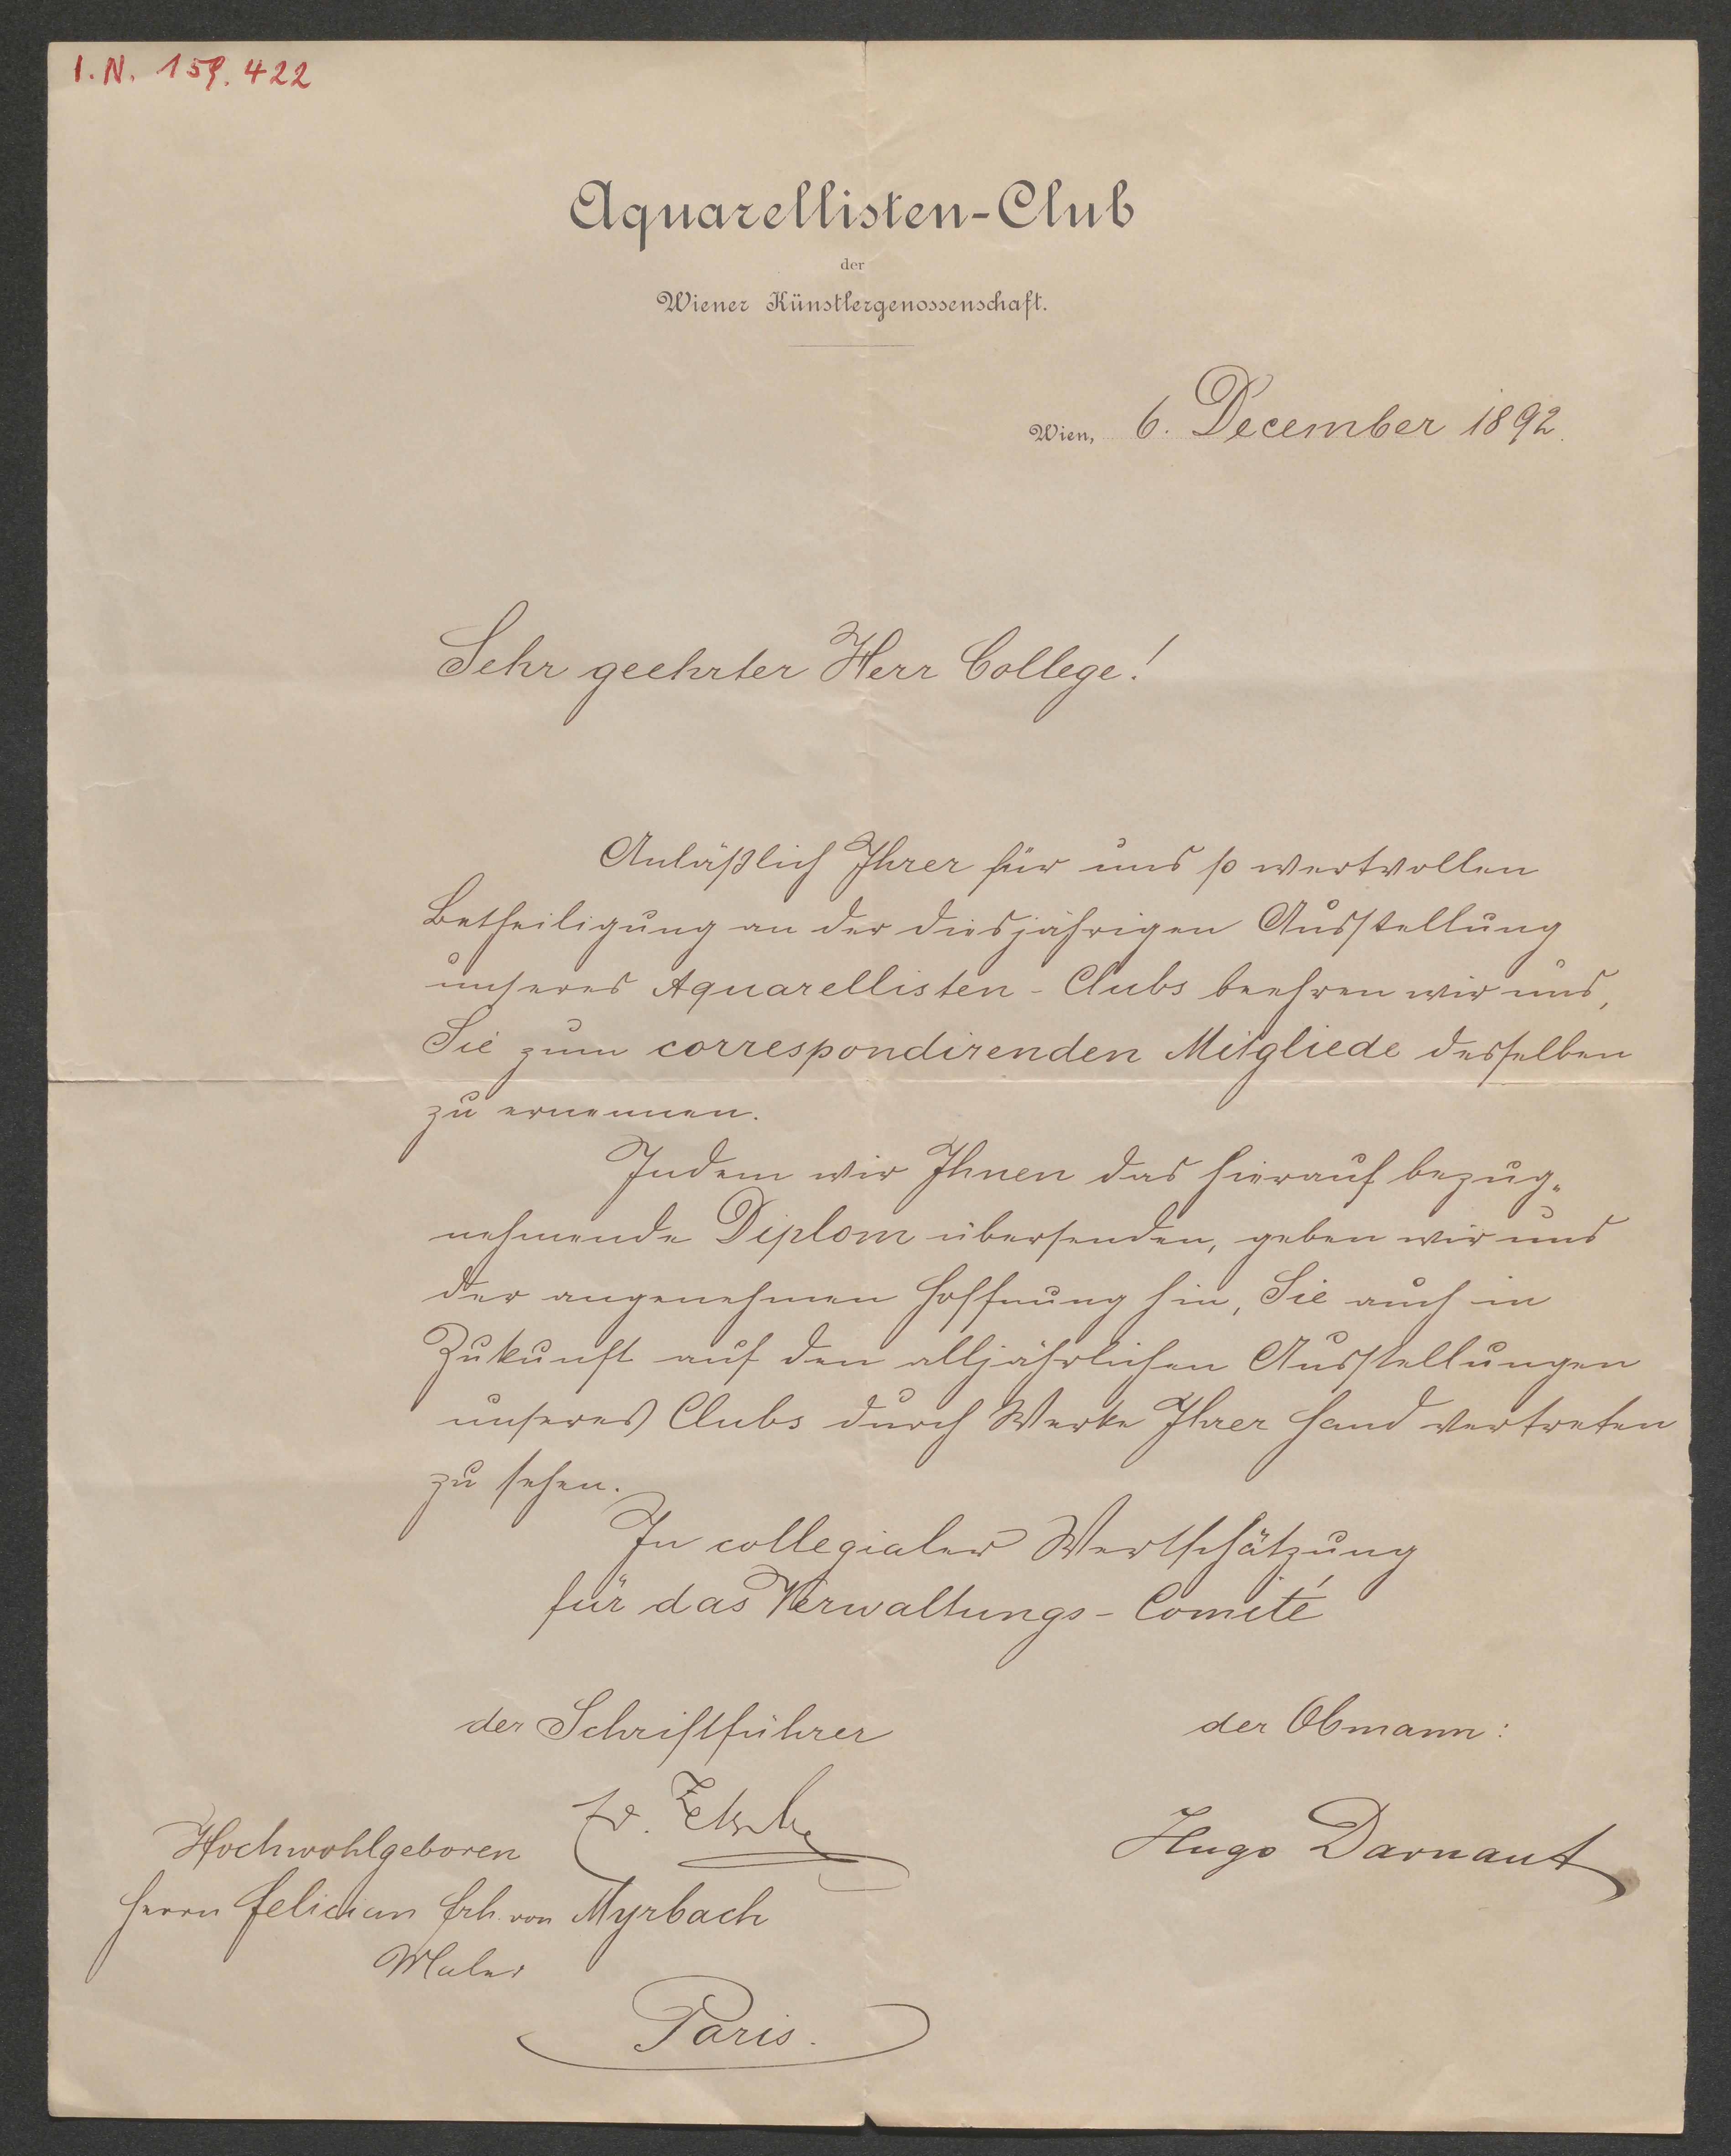 I.N. 159.422
Aquarellisten-Club
der
Wiener Künstlergenossenschaft.
Wien, 6. December 1892.
Sehr geehrter Herr College!
Anläßlich Ihrer für uns so wertvollen
Betheiligung an der diesjährigen Ausstellung
unseres Aquarellisten-Clubs beehren wir uns,
Sie zum correspondirenden Mitgliede desselben
zu ernennen.
Indem wir Ihnen das hierauf bezug-
nehmende Diplom übersenden, geben wir uns
der angenehmen Hoffnung hin, Sie auch in
Zukunft auf den alljährlichen Ausstellungen
unseres Clubs durch Werke Ihrer Hand vertreten
zu sehen.
In collegialer Wertschätzung
für das Verwaltungs-Comité
der Schriftführer
der Obmann:
Hugo Darnaut
Hochwohlgeboren
Herrn Felician Frh. von Myrbach
Maler
Paris.